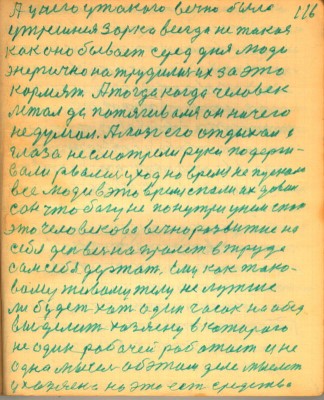 116
А у него у такого вечно было
утренния зорка всегда не такая
как оно бывает серед дня люди
энергично натрудились за это
кормят. А тогда когда человек
встал да потягивался он ничего
не думал. А мозг его отдыхал
глаза не смотрели руки подерги-
вали рвался уход но время не пускало
все люди в это время спали их довил
сон что богу не по нутри у него спат
это человекова вечно развитие на
себя день вечно в труде
сам себя держат. Ему как тако-
вому живому телу не лутше
ли будет хот один часок на обед
выделит хозяену в которого
не один рабочей работает и не
одна мысел об этом деле мыслит
у хозяена на это ест средства